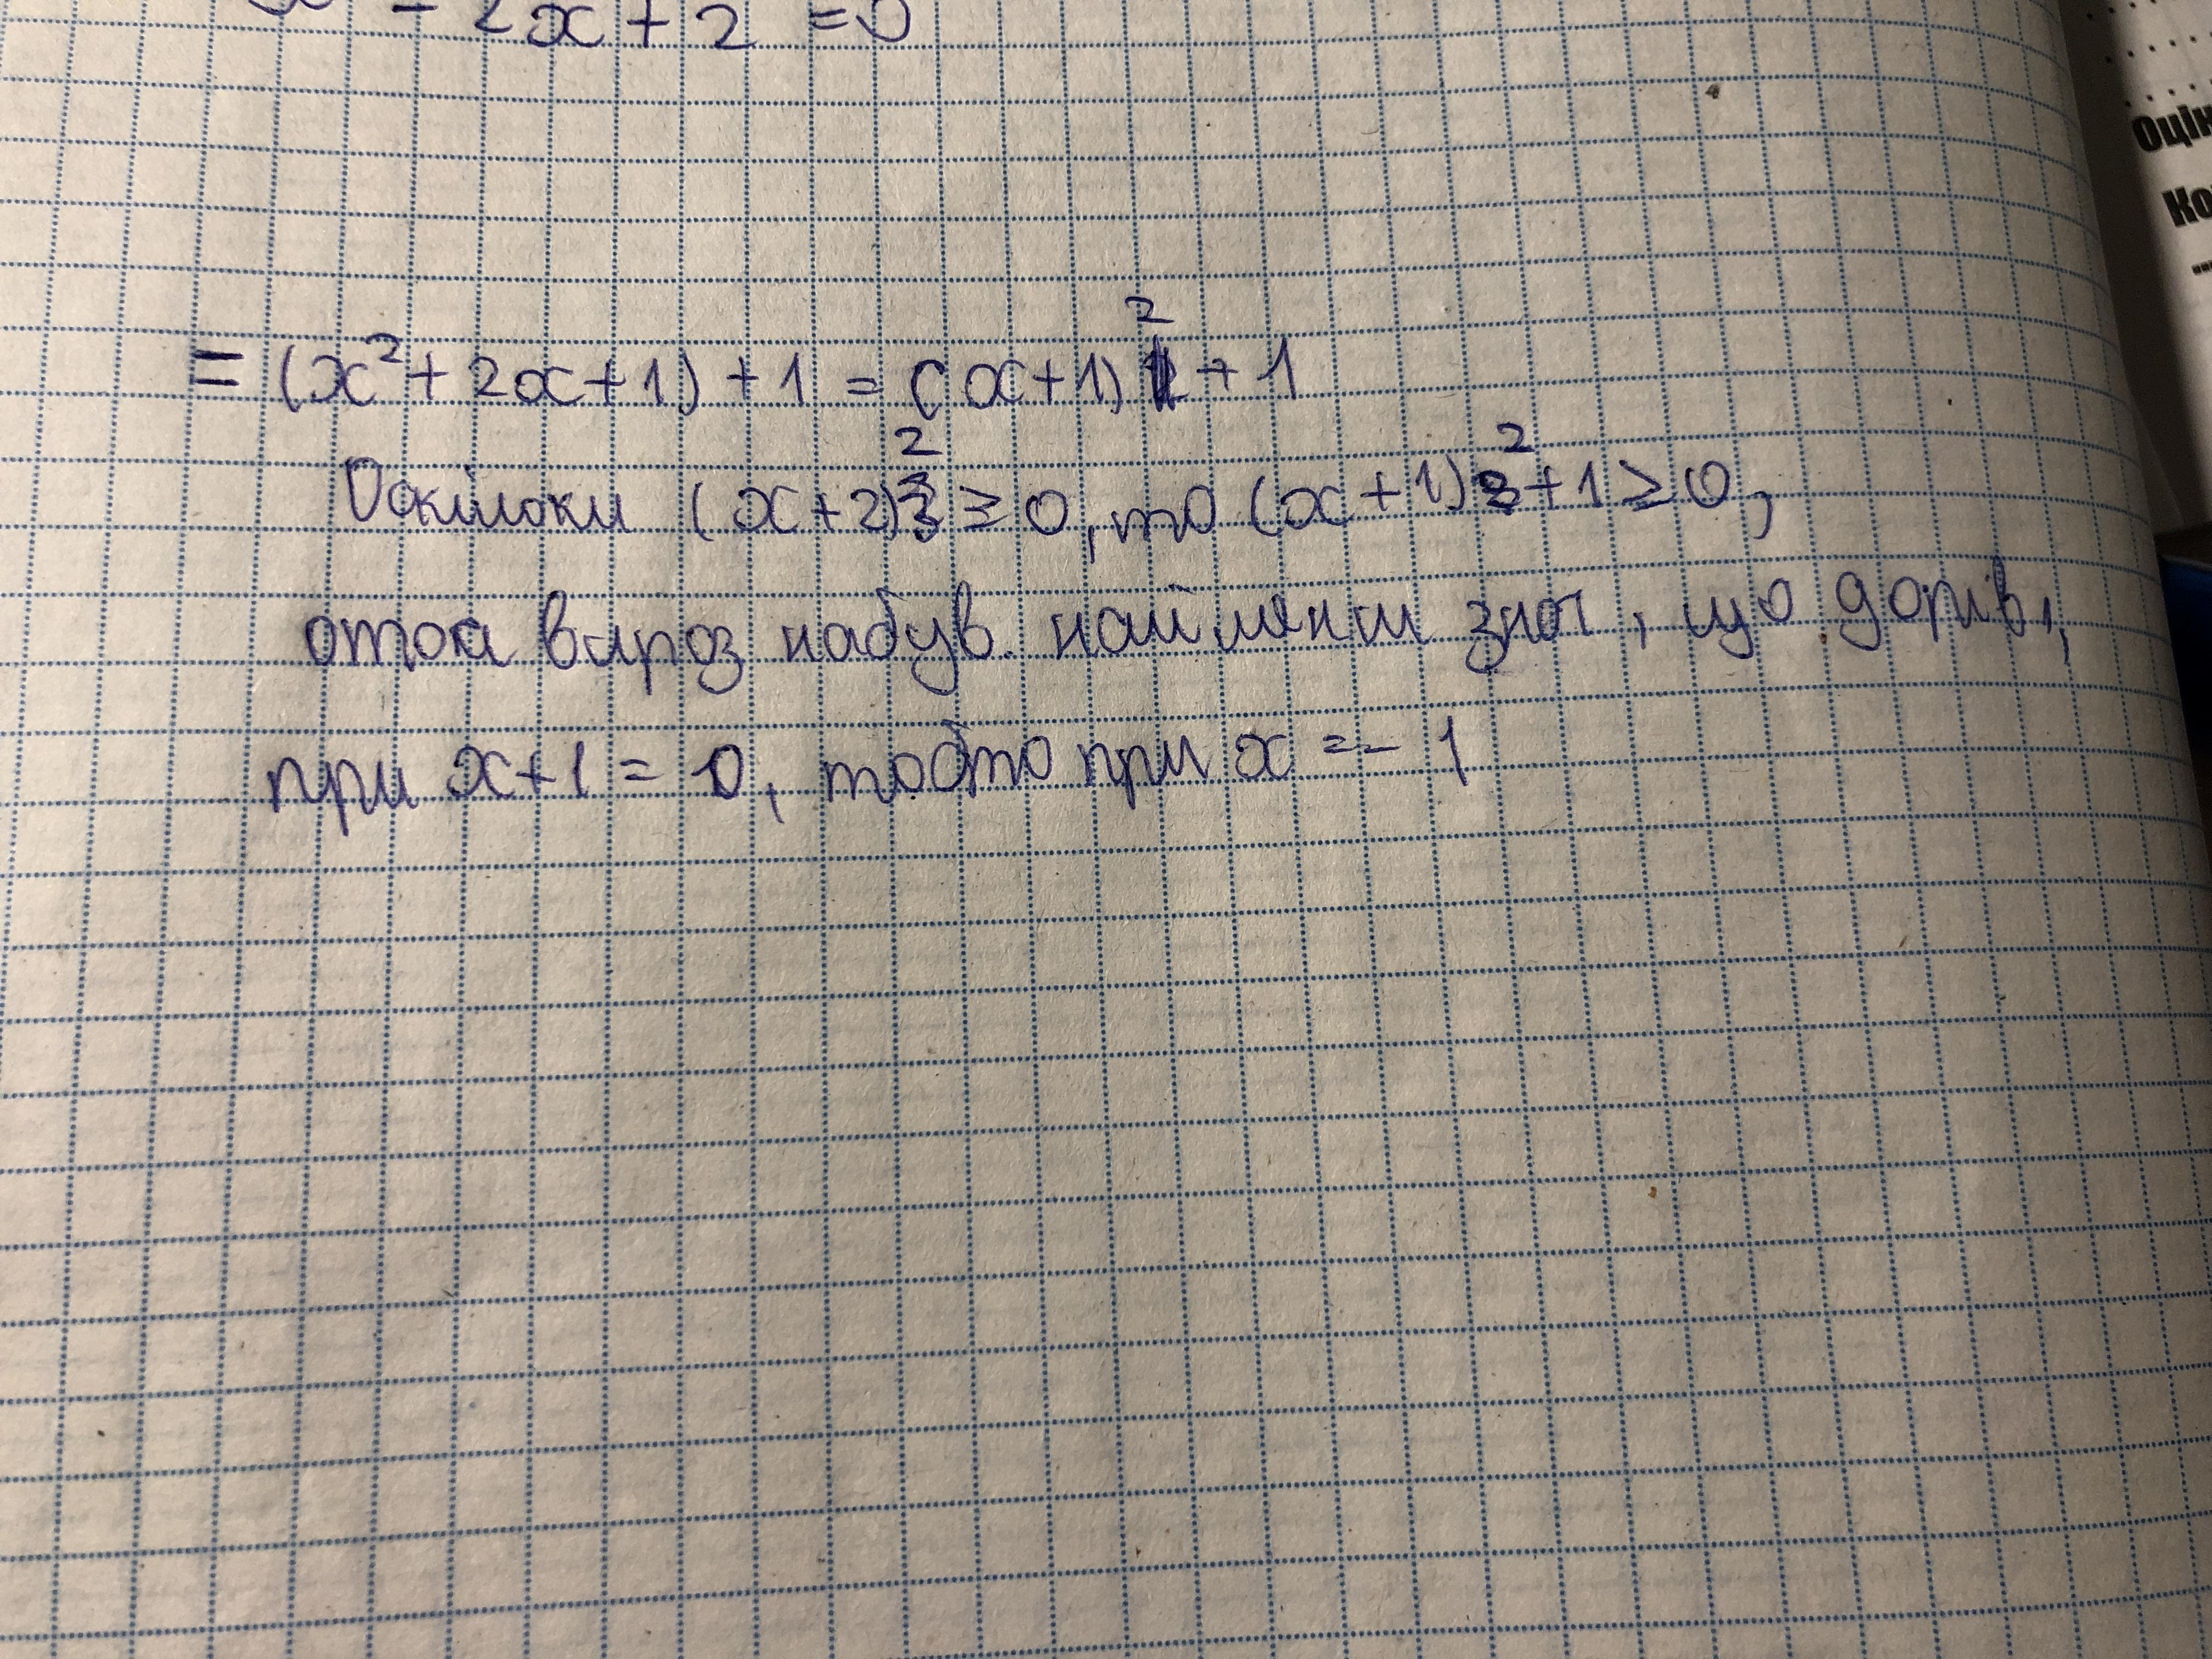 - 2x + 2 = 0
Оцін
Ко
= (x² + 2x + 1) + 1 = (x + 1)² + 1
Оскільки (x + 2)² ≥ 0, то (x + 1)² + 1 ≥ 0,
отже вираз набув. найменш знач, що дорів,
при x + 1 = 0, тобто при x = - 1